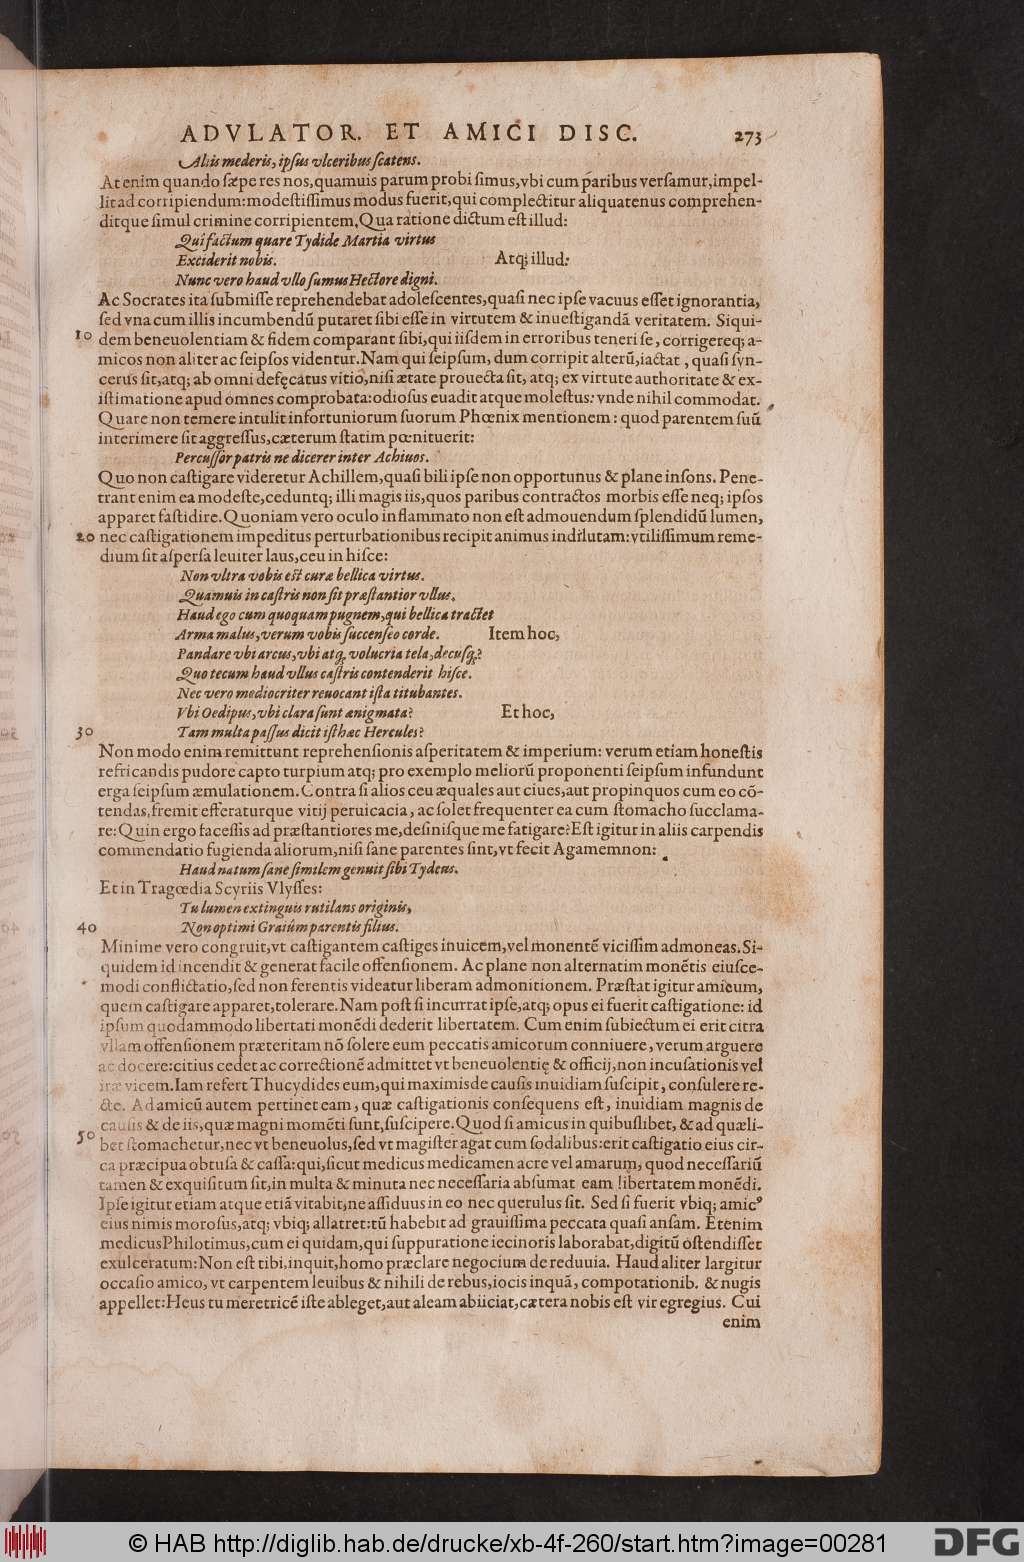 ADVLATOR. ET AMICI DISC. 273
Aliis mederis, ipsus vlceribus scatens.
At enim quando sæpe res nos, quamuis parum probi simus, vbi cum paribus versamur, impel-
lit ad corripiendum: modestissimus modus fuerit, qui complectitur aliquatenus comprehen-
ditque simul crimine corripientem. Qua ratione dictum est illud:
Qui factum quare Tydide Martia virtus
Exciderit nobis. Atq; illud:
Nunc vero haud vllo sumus Hectore digni.
Ac Socrates ita submisse reprehendebat adolescentes, quasi nec ipse vacuus esset ignorantia,
sed vna cum illis incumbendū putaret sibi esse in virtutem & inuestigandā veritatem. Siqui-
10 dem beneuolentiam & fidem comparant sibi, qui iisdem in erroribus teneri se, corrigereq; a-
micos non aliter ac seipsos videntur. Nam qui seipsum, dum corripit alterū, iactat, quasi syn-
cerus sit, atq; ab omni defęcatus vitio, nisi ætate prouecta sit, atq; ex virtute authoritate & ex-
istimatione apud omnes comprobata: odiosus euadit atque molestus: vnde nihil commodat.
Quare non temere intulit infortuniorum suorum Phœnix mentionem: quod parentem suū
interimere sit aggressus, cæterum statim pœnituerit:
Percussor patris ne dicerer inter Achiuos.
Quo non castigare videretur Achillem, quasi bili ipse non opportunus & plane insons. Pene-
trant enim ea modeste, ceduntq; illi magis iis, quos paribus contractos morbis esse neq; ipsos
apparet fastidire. Quoniam vero oculo inflammato non est admouendum splendidū lumen,
20 nec castigationem impeditus perturbationibus recipit animus indilutam: vtilissimum reme-
dium sit aspersa leuiter laus, ceu in hisce:
Non vltra vobis est curæ bellica virtus.
Quamuis in castris non sit præstantior vllus,
Haud ego cum quoquam pugnem, qui bellica tractet
Arma malus, verum vobis succenseo corde. Item hoc,
Pandare vbi arcus, vbi atq; volucria tela, decusq;?
Quo tecum haud vllus castris contenderit hisce.
Nec vero mediocriter reuocant ista titubantes.
Vbi Oedipus, vbi clara sunt ænigmata? Et hoc,
30 Tam multa passus dicit isthæc Hercules?
Non modo enim remittunt reprehensionis asperitatem & imperium: verum etiam honestis
refricandis pudore capto turpium atq; pro exemplo meliorū proponenti seipsum infundunt
erga seipsum æmulationem. Contra si alios ceu æquales aut ciues, aut propinquos cum eo cō-
tendas, fremit efferaturque vitij peruicacia, ac solet frequenter ea cum stomacho succlama-
re: Quin ergo facessis ad præstantiores me, desinisque me fatigare? Est igitur in aliis carpendis
commendatio fugienda aliorum, nisi sane parentes sint, vt fecit Agamemnon:
Haud natum sane similem genuit sibi Tydeus.
Et in Tragœdia Scyriis Vlysses:
Tu lumen extinguis rutilans originis,
40 Non optimi Graiûm parentis filius.
Minime vero congruit, vt castigantem castiges inuicem, vel monentē vicissim admoneas. Si-
quidem id incendit & generat facile offensionem. Ac plane non alternatim monētis eiusce-
modi conflictatio, sed non ferentis videatur liberam admonitionem. Præstat igitur amicum,
quem castigare apparet, tolerare. Nam post si incurrat ipse, atq; opus ei fuerit castigatione: id
ipsum quodammodo libertati monēdi dederit libertatem. Cum enim subiectum ei erit citra
vllam offensionem præteritam nō solere eum peccatis amicorum conniuere, verum arguere
ac docere: citius cedet ac correctionē admittet vt beneuolentię & officij, non incusationis vel
iræ vicem. Iam refert Thucydides eum, qui maximis de causis inuidiam suscipit, consulere re-
cte. Ad amicū autem pertinet eam, quæ castigationis consequens est, inuidiam magnis de
causis & de iis, quæ magni momēti sunt, suscipere. Quod si amicus in quibuslibet, & ad quæli-
50 bet stomachetur, nec vt beneuolus, sed vt magister agat cum sodalibus: erit castigatio eius cir-
ca præcipua obtusa & cassa: qui, sicut medicus medicamen acre vel amarum, quod necessariū
tamen & exquisitum sit, in multa & minuta nec necessaria absumat eam libertatem monēdi.
Ipse igitur etiam atque etiā vitabit, ne assiduus in eo nec querulus sit. Sed si fuerit vbiq; amicꝰ
eius nimis morosus, atq; vbiq; allatret: tū habebit ad grauissima peccata quasi ansam. Etenim
medicus Philotimus, cum ei quidam, qui suppuratione iecinoris laborabat, digitū ostendisset
exulceratum: Non est tibi, inquit, homo præclare negocium de reduuia. Haud aliter largitur
occasio amico, vt carpentem leuibus & nihili de rebus, iocis inquā, compotationib. & nugis
appellet: Heus tu meretricē iste ableget, aut aleam abiiciat, cætera nobis est vir egregius. Cui
enim
© HAB http://diglib.hab.de/drucke/xb-4f-260/start.htm?image=00281
DFG